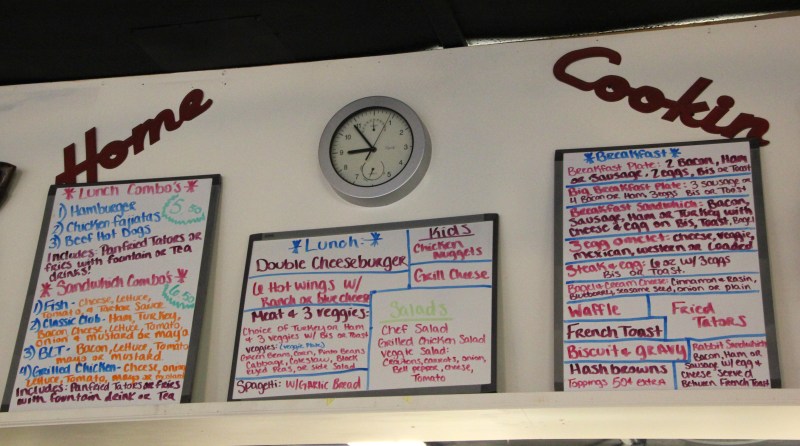 Home
Cookin
Lunch Combo's
1) Hamburger
2) Chicken Fajatas
3) Beef Hot Dogs
5.50
Includes: Panfried Tators or
fries with fountain or Tea
drinks!
Sandwhich Combo's
6.50
1) Fish - Cheese, Lettuce,
Tomato, & Tartar Sauce
2) Classic Club - Ham, Turkey,
Bacon Cheese, Lettuce, Tomato,
onion & mustard or mayo
3) BLT - Bacon, Lettuce, Tomato
mayo or mustard.
4) Grilled Chicken - Cheese, onion
Lettuce, Tomato, mayo or mustard
Includes: Panfried Tators or fries
with fountain drink or Tea
Lunch:
Double Cheeseburger
6 Hot wings w/
Ranch or blue cheese
Meat & 3 veggies:
Choice of Turkey or Ham
& 3 veggies w/ Bis or Toast
veggies: (veggie Plate)
Green Beans, Corn, Pinto Beans
Cabbage, Coleslaw, Black
Eyed Peas, or side Salad
Spagetti: w/Garlic Bread
Kids
Chicken
Nuggets
Grill Cheese
Salads
Chef Salad
Grilled Chicken Salad
veggie Salad:
Croutons, carrots, onion,
Bell pepper, cheese,
Tomato
Breakfast
Breakfast Plate: 2 Bacon, Ham
or Sausage, 2 eggs, Bis or Toast
Big Breakfast Plate: 3 Sausage or
4 Bacon or Ham 3 eggs Bis or Toast
Breakfast Sandwhich: Bacon,
Sausage, Ham or Turkey with
cheese & egg on Bis, Toast, Bagel
3 egg omelet: cheese, veggie,
mexican, western or Loaded
Steak & egg: 6 oz w/ 3 eggs
Bis or Toast.
Bagel & Cream Cheese: Cinnamon & Rasin,
Blueberry, seasame seed, onion or plain
Waffle
Fried
Tators
French Toast
Biscuit & gravy
Hashbrowns
Toppings 50¢ extra
Rabbit Sandwhich
Bacon, Ham or
Sausage w/ egg &
cheese Served
Between French Toast